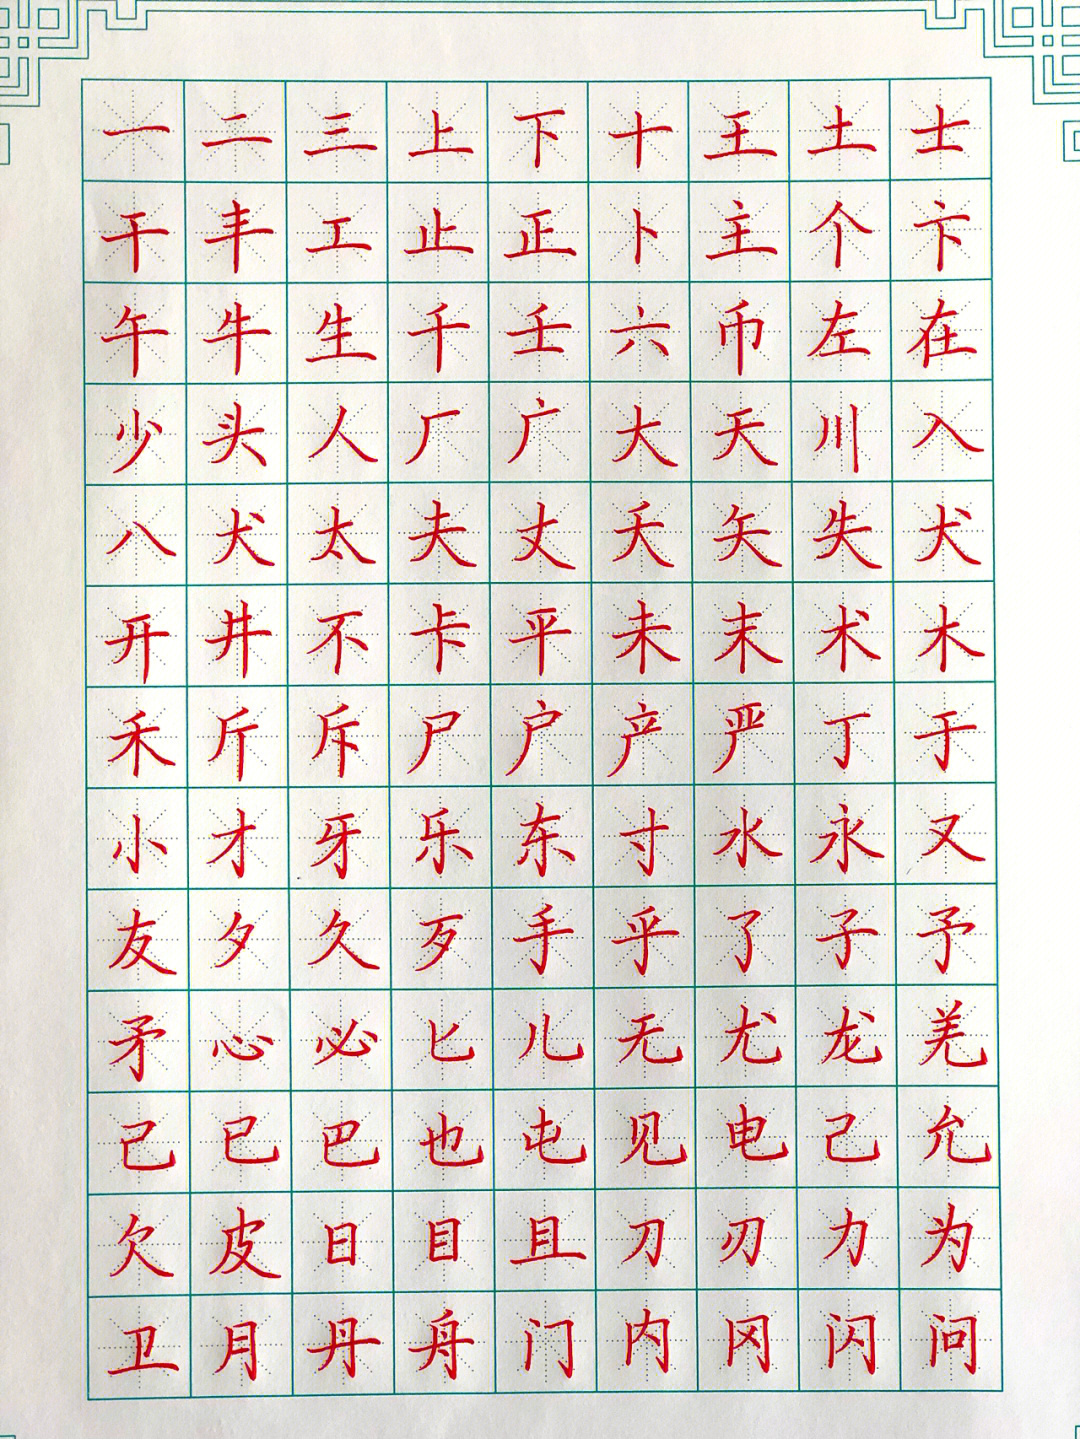 一二三上下十王土士
干丰工止正卜主个卞
午牛生千壬六币左在
少头人厂广大天川入
八犬太夫丈夭矢失犬
开井不卡平未末术木
禾斤斥尸户产严丁于
小才牙乐东寸水永又
友夕久歹手乎了子予
矛心必匕儿无尤龙羌
己已巴也屯见电己允
欠皮日目且刀刃力为
卫月丹舟门内冈闪问